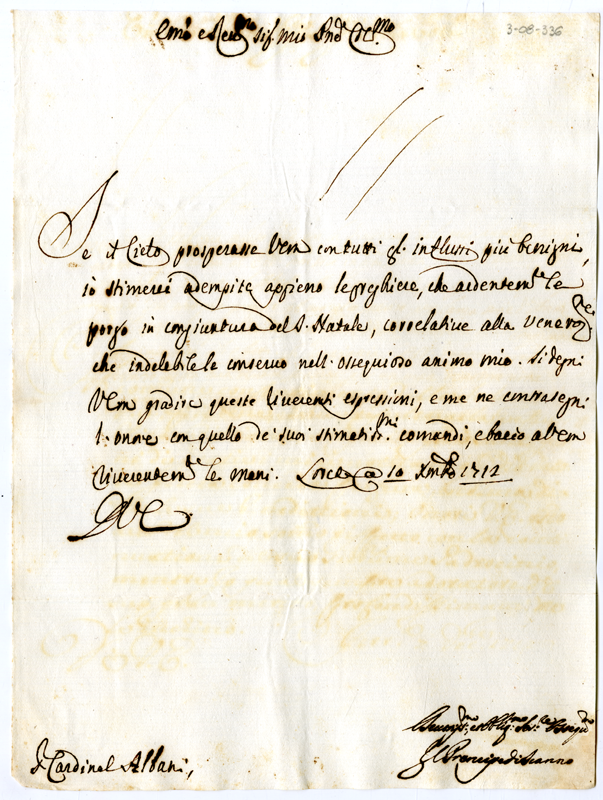 3-08-336
Emo e Reumo Sig. mio Pnd. Colmo
Se il Cielo prosperasse Vem con tutti gl' influssi più benigni,
io stimerei adempite appieno le preghiere, che ardentemte le
porgo in congiuntura del S. Natale, correlative alla veneraz.ne
che indelebile le conservo nell' ossequioso animo mio. Si degni
Vem gradire queste riverenti espressioni, e me ne contrasegni
l' onore con quello de' suoi stimatiss.mi comandi, e bacio a Vem
riverentem.te le mani. 10 Xmbre 1712
DVE
il Prencipe di Scanno
S. Cardinal Albani,